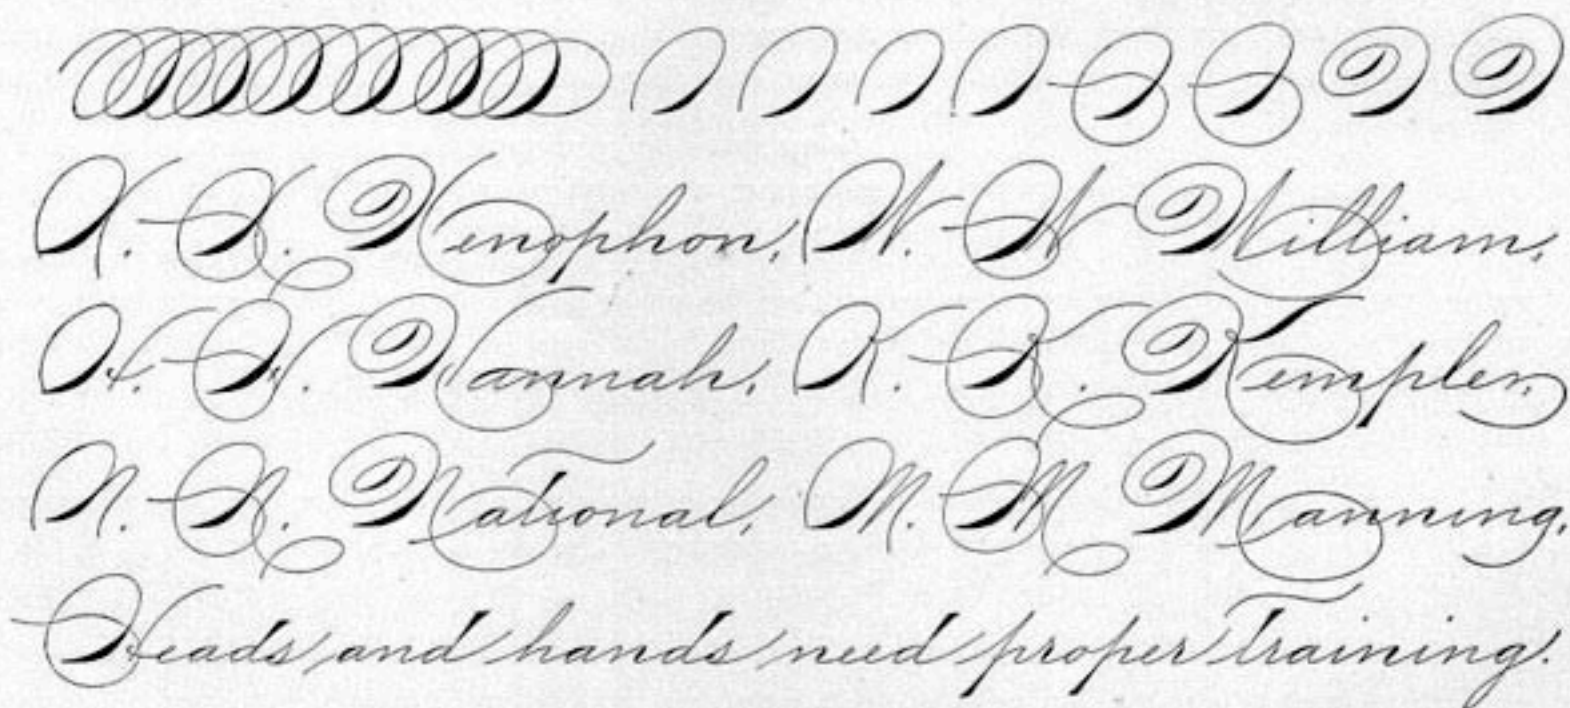 X. X. Xenophon, W. W William,
H. H. Hannah, K. K. Kempler,
N. N. National, M. M Manning,
Heads and hands need proper training.